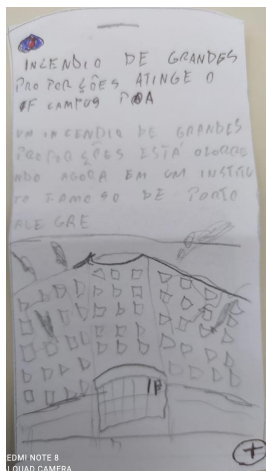 INCENDIO DE GRANDES
PROPORÇÕES ATINGE O
IF CAMPUS POA
UM INCENDIO DE GRANDES
PROPORÇÕES ESTÁ OCORRE
NDO AGORA EM UM INSTITU
TO FAMOSO DE PORTO
ALEGRE
IF
+
EDMI NOTE 8
QUAD CAMERA